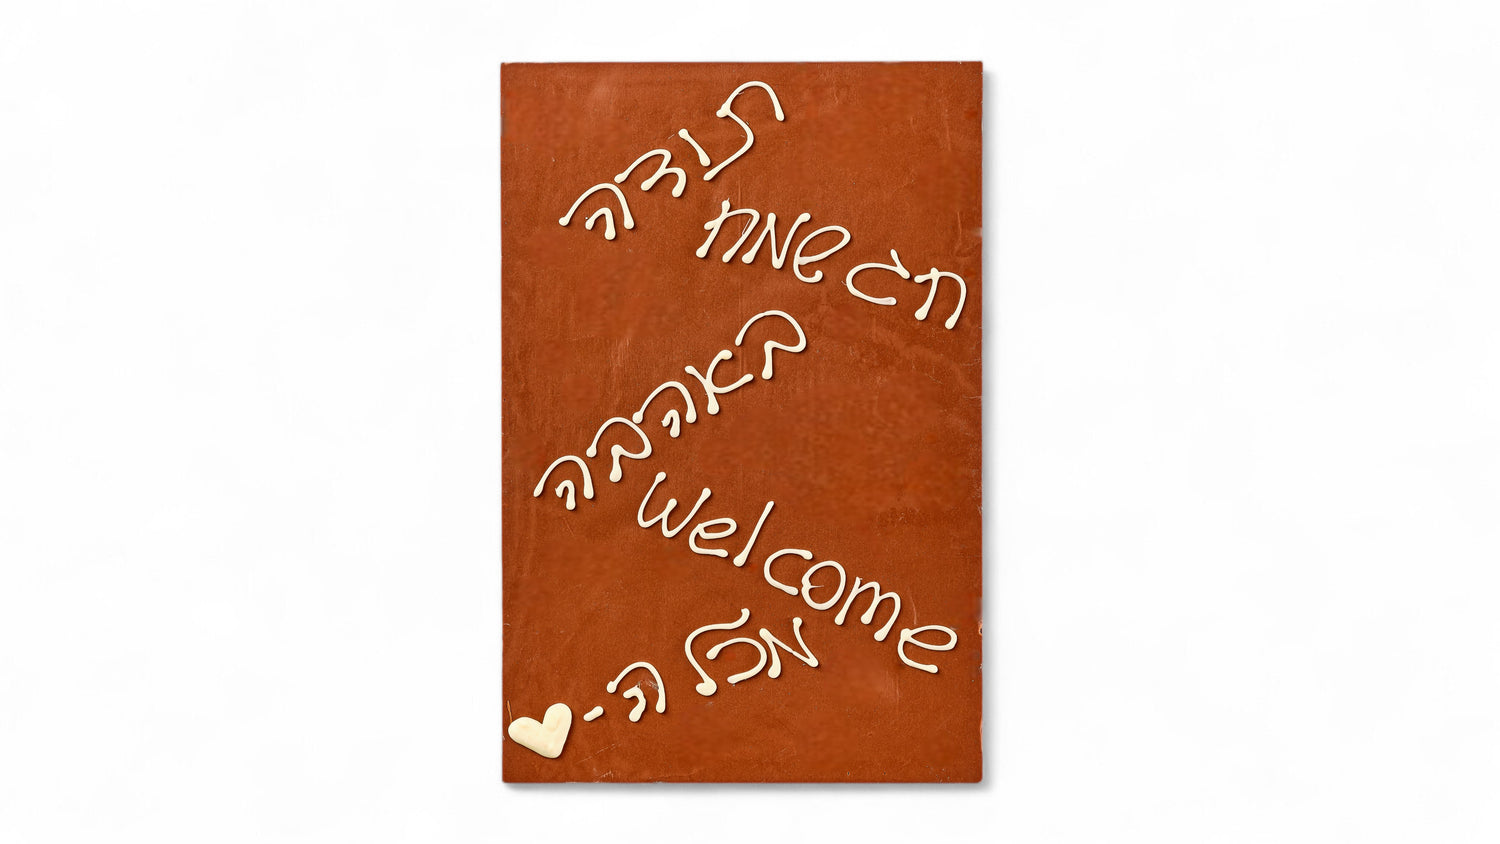 תודה
חג שמח
באהבה
Welcome
מכל ה-